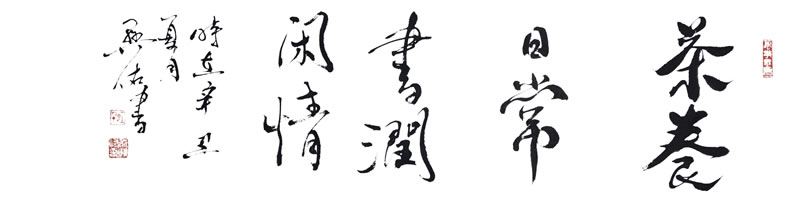 茶養
日常
書潤
閑情
時在辛丑
夏月
佑書